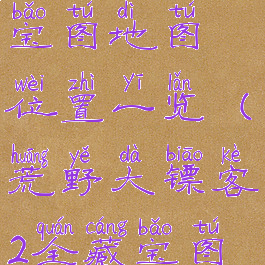 bǎo tú dì tú
宝图地图
wèi zhì yī lǎn
位置一览（
huāng yě dà biāo kè
荒野大镖客
quán cáng bǎo tú
2全藏宝图